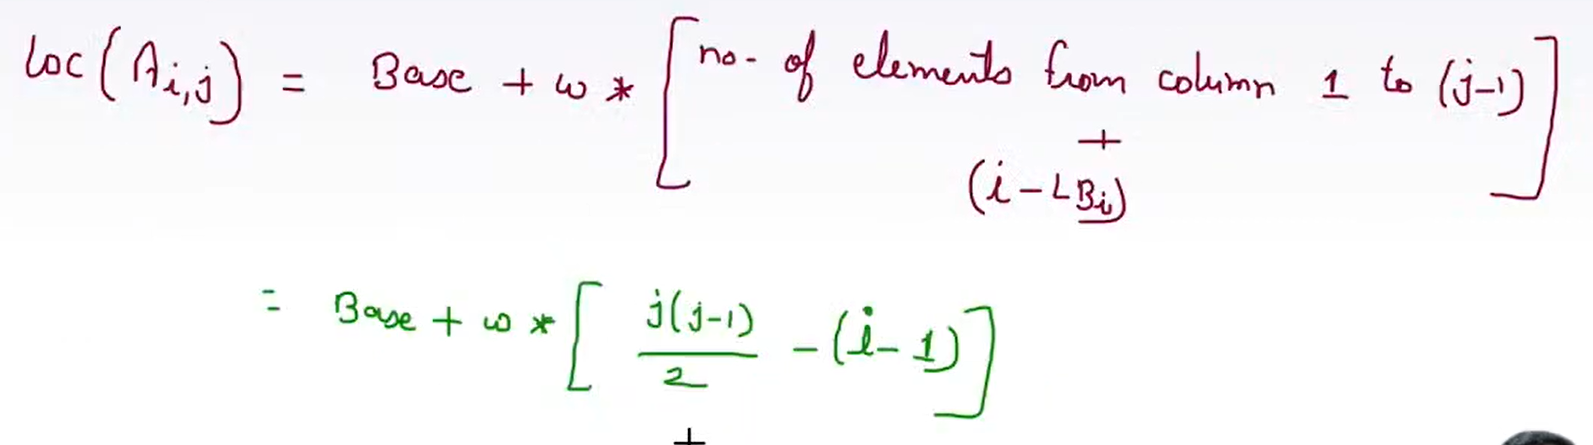 Loc(A_{i,j}) = Base + w * [no. of elements from column 1 to (j-1)
+
(i-LB_i)]
= Base + w * [j(j-1)/2 - (i-1)]
+